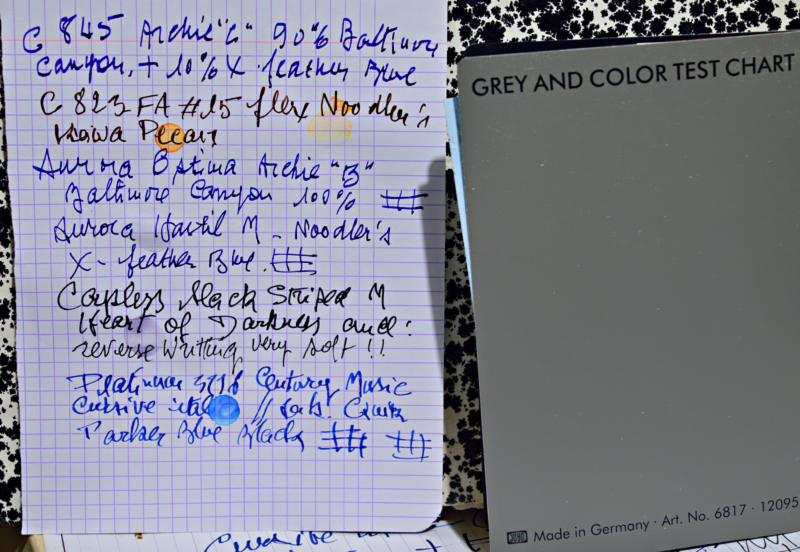 C 845 Archie "C" 90% Baltimore
Canyon, + 10% X-feather Blue
C 823 FA #15 flex Noodler's
Kiowa Pecan
Aurora Optima Archie "B"
Baltimore Canyon 100%
Aurora Hastil M - Noodler's
X-feather Blue.
Capless black Striped M
Heart of Darkness and:
reverse writing very soft !!
Platinum 3776 Century Music
Cursive ital //
Parker Blue Black
Cursive
GREY AND COLOR TEST CHART
Made in Germany · Art. No. 6817 · 12095